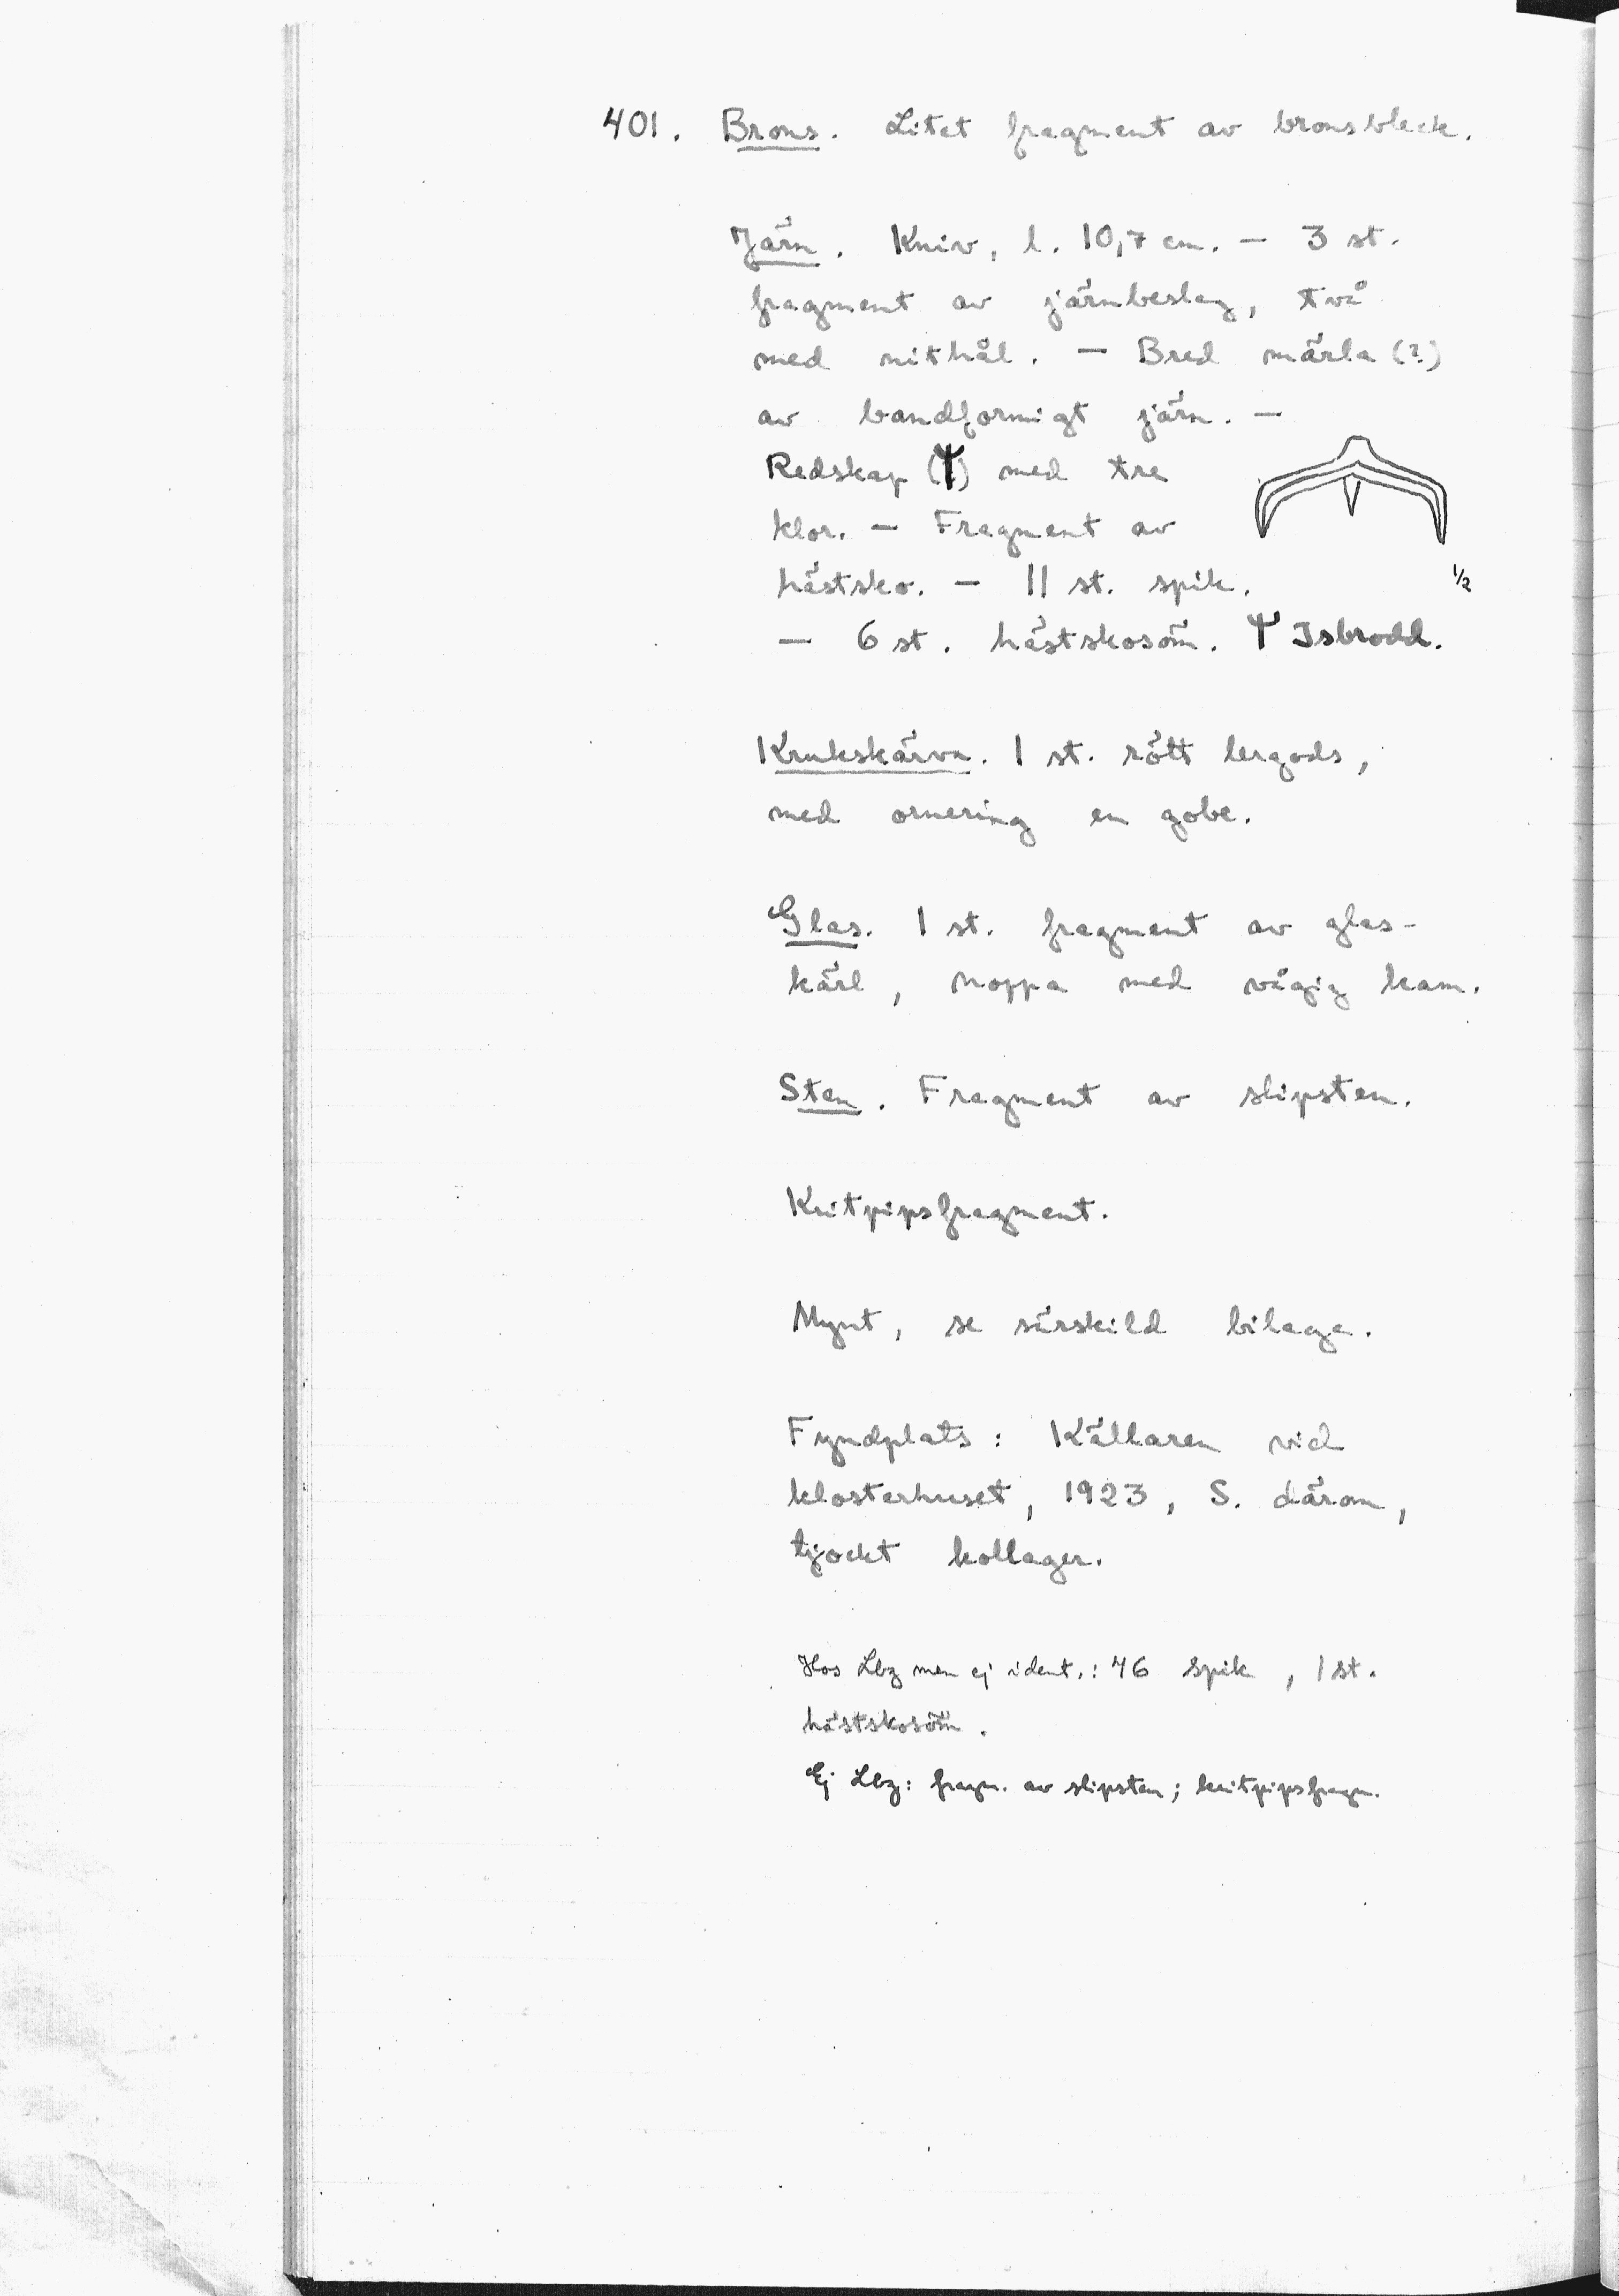 401. Brons. Litet fragment av bronsbleck.
Järn. Kniv, l. 10,7 cm. — 3 st.
fragment av järnbeslag, två
med nithål. — Bred märla (?)
av bandformigt järn. —
Redskap (?) med tre
klor. — Fragment av
hästsko. — 11 st. spik.
1/2
— 6 st. hästskosöm. Isbrodd.
Krukskärva. 1 st. rött lergods,
med ornering en gobe.
Glas. 1 st. fragment av glas-
kärl, noppa med vågig kam.
Sten. Fragment av slipsten.
Kritpipsfragment.
Mynt, se särskild bilaga.
Fyndplats: Källaren vid
klosterhuset, 1923, S. därom,
tjockt kollager.
Hos Lbg men ej ident.: 46 spik, 1 st.
hästskosöm.
Ej Lbg: fragm. av slipsten; kritpipsfragm.